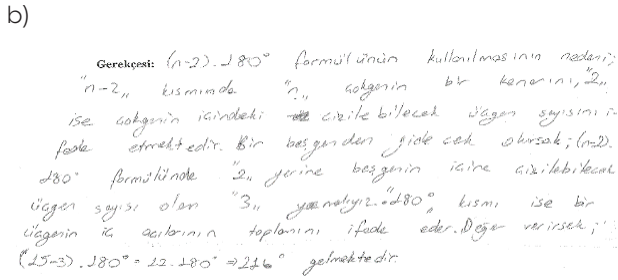 b)
Gerekçesi: (n-2).180° formülünün kullanılmasının nedeni;
"n-2,, kısmında "n,, çokgenin bir kenarını, "2,,
ise çokgenin içindeki çizilebilecek üçgen sayısını i-
fade etmektedir. Bir beşgenden gidecek olursak; (n-2).
180° formülünde "2,, yerine beşgenin içine çizilebilecek
üçgen sayısı olan "3,, yazmalıyız. "180°,, kısmı ise bir
üçgenin iç açılarının toplamını ifade eder. Değer verirsek;
(15-3).180° = 12.180° ⇒ 216° gelmektedir.